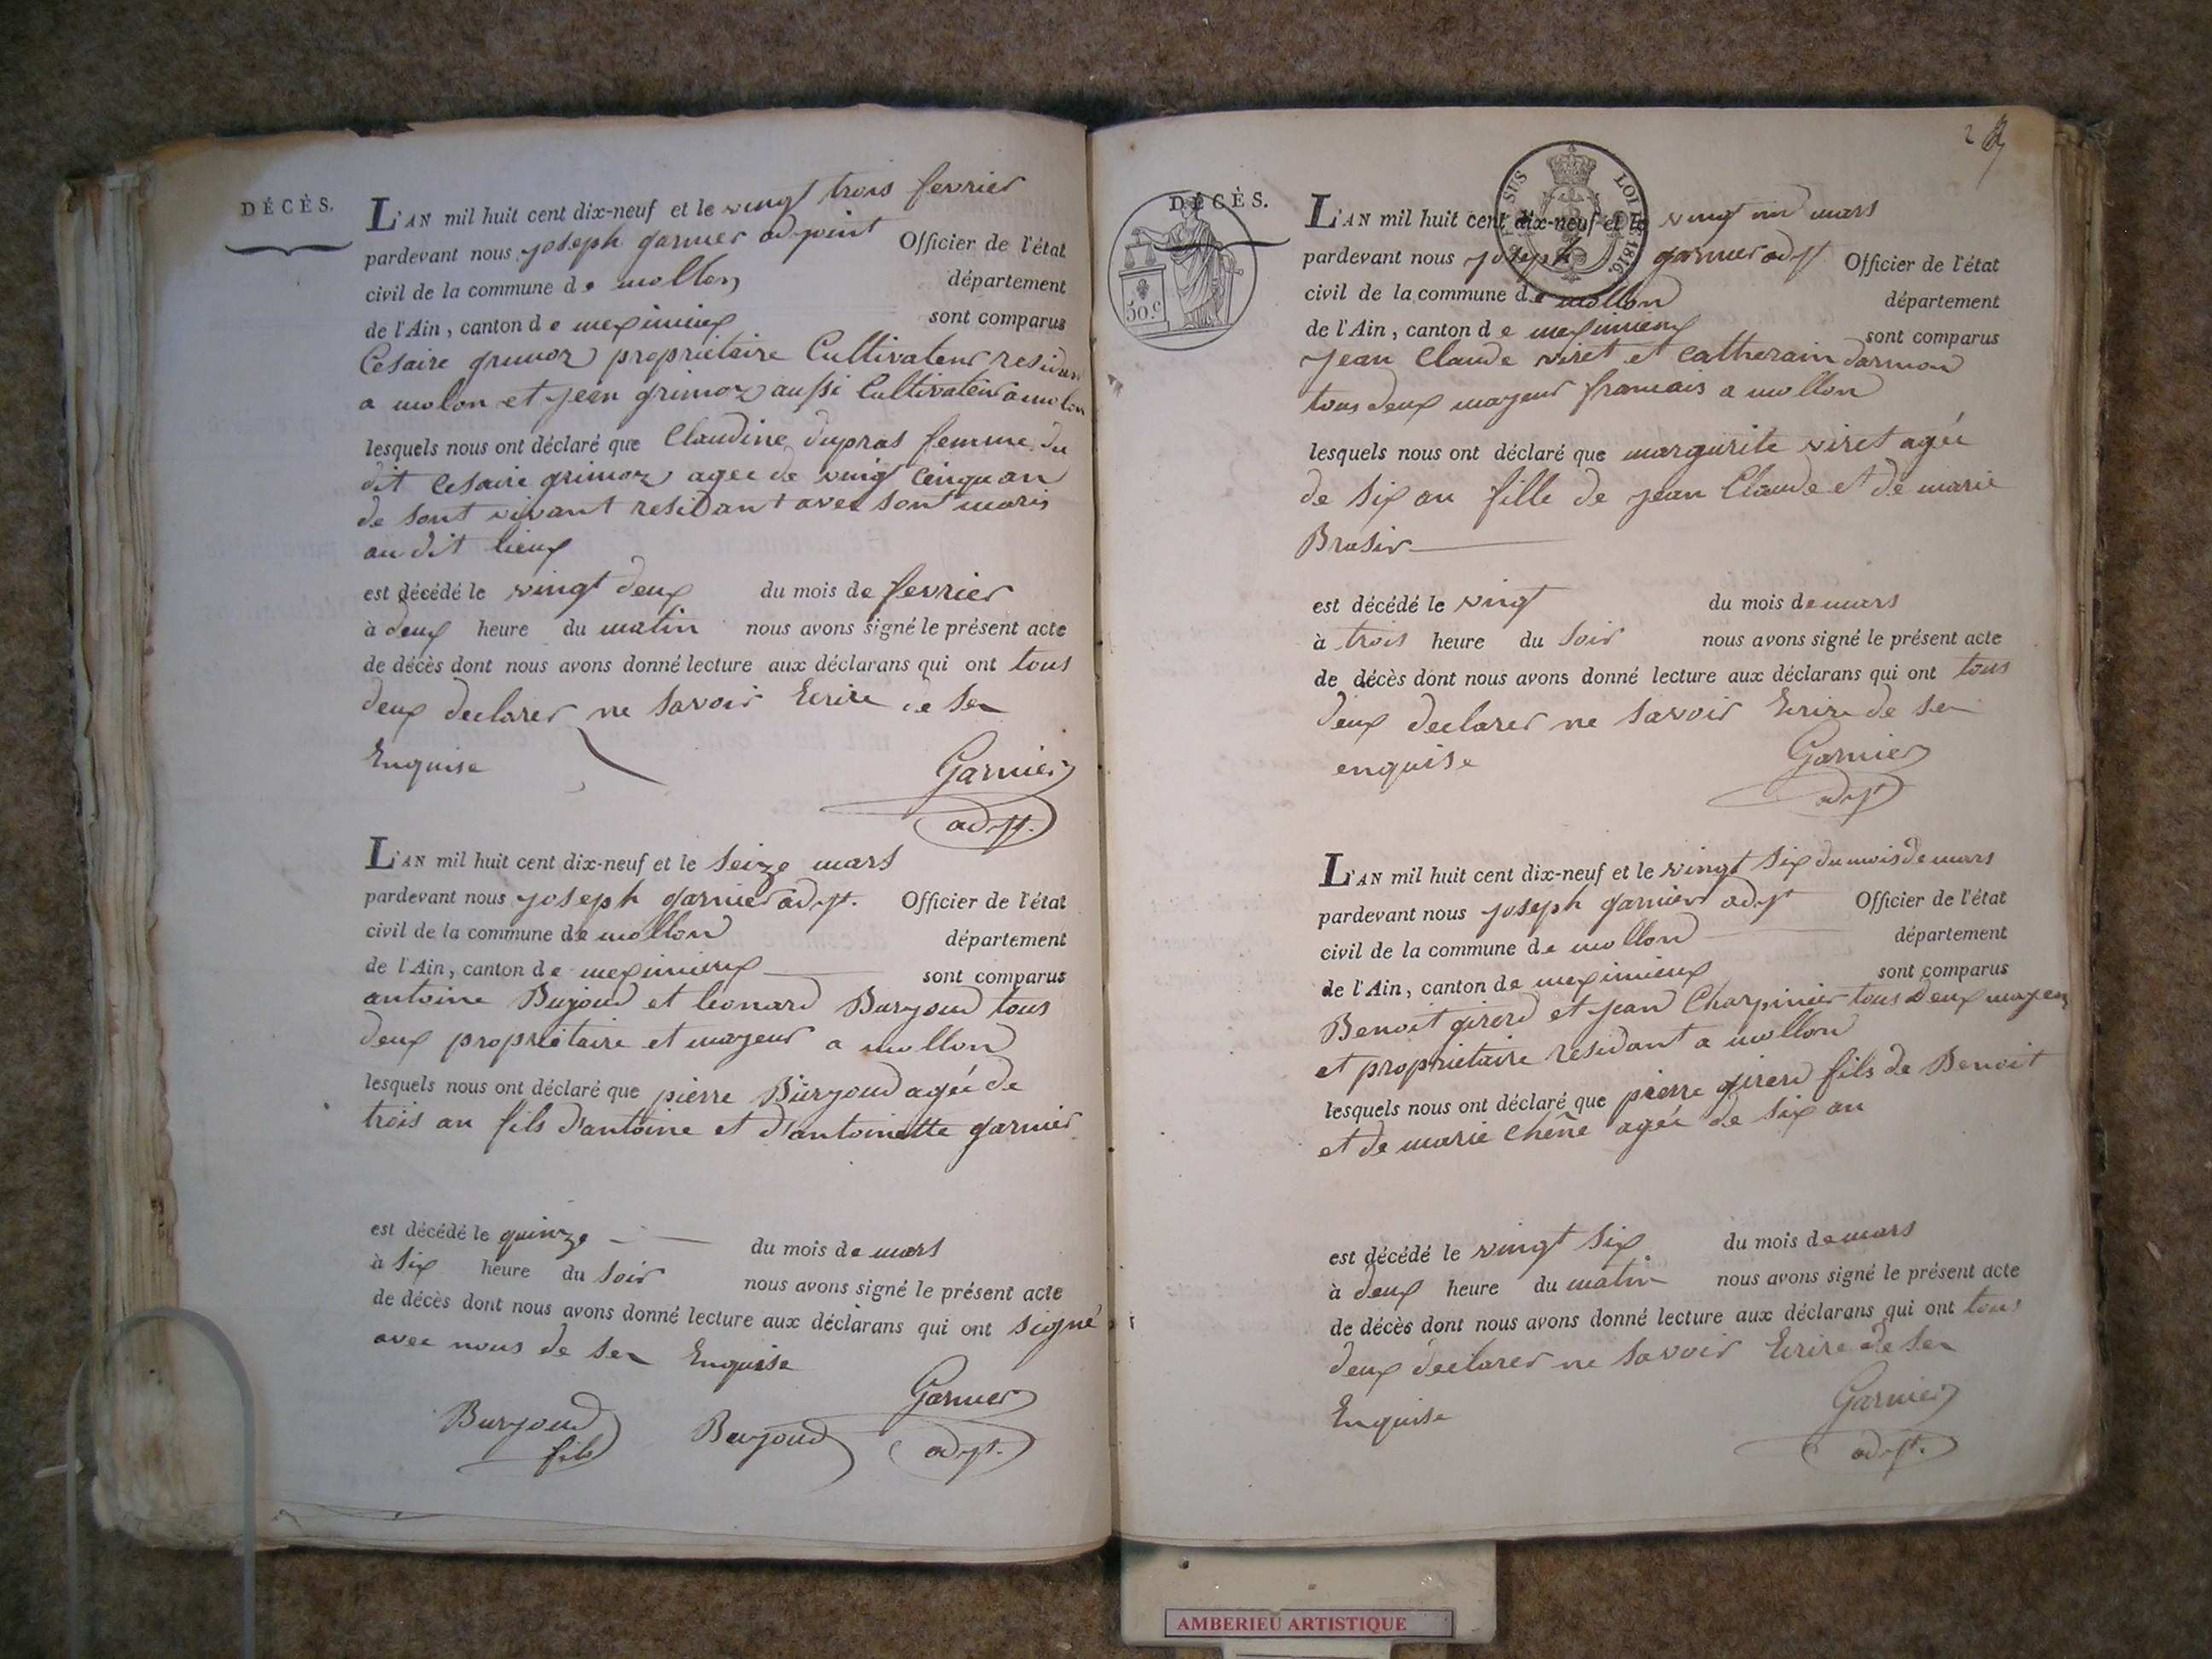 DÉCÈS.
L'AN mil huit cent dix-neuf et le vingt trois fevrier
pardevant nous joseph garnier adjoint Officier de l'état
civil de la commune de mollon département
de l'Ain, canton de meximieux sont comparus
Cesaire grimoz propriétaire Cultivateur residant
a molon et jean grimoz aussi Cultivateur a molon
lesquels nous ont déclaré que Claudine dupras femme du
dit Cesaire grimoz agee de vingt cinqu an
de sont vivant residant avec sont maris
au dit lieux
est décédé le vingt deux du mois de fevrier
à deux heure du matin nous avons signé le présent acte
de décès dont nous avons donné lecture aux déclarans qui ont tous
deux declarer ne savoir Ecrire de ser
Enquise
Garnier
adjt.
L'AN mil huit cent dix-neuf et le seize mars
pardevant nous joseph garnier adjt. Officier de l'état
civil de la commune de mollon département
de l'Ain, canton de meximieux sont comparus
antoine Burjoud et leonard Burjoud tous
deux propriétaire et mayeur a mollon
lesquels nous ont déclaré que pierre Burjoud agée de
trois an fils d'antoine et d'antoinette garnier
est décédé le quinze du mois de mars
à six heure du soir nous avons signé le présent acte
de décès dont nous avons donné lecture aux déclarans qui ont signé
avec nous de ser Enquise
Garnier
Burjoud fils Burjoud adjt.
2
DÉCÈS.
50.c
SUS LOI DE 1816.
L'AN mil huit cent dix-neuf et le vingt un mars
pardevant nous joseph garnier adjt Officier de l'état
civil de la commune de mollon département
de l'Ain, canton de meximieux sont comparus
jean Claude viret et Catherain darmon
tous deux mayeur francais a mollon
lesquels nous ont déclaré que margurite viret agée
de six an fille de jean Claude et de marie
Brusir
est décédé le vingt du mois de mars
à trois heure du soir nous avons signé le présent acte
de décès dont nous avons donné lecture aux déclarans qui ont tous
deux declarer ne savoir Ecrire de ser
enquise
Garnier
adjt
L'AN mil huit cent dix-neuf et le vingt six du mois de mars
pardevant nous joseph garnier adjt Officier de l'état
civil de la commune de mollon département
de l'Ain, canton de meximieux sont comparus
Benoit girerd et jean Charpinier tous deux mayeur
et propriétaire résidant a mollon
lesquels nous ont déclaré que pierre girerd fils de Benoit
et de marie chêne agée de six an
est décédé le vingt six du mois de mars
à deux heure du matin nous avons signé le présent acte
de décès dont nous avons donné lecture aux déclarans qui ont tous
deux declarer ne savoir Ecrire de ser
Enquise
Garnier
adjt.
AMBERIEU ARTISTIQUE